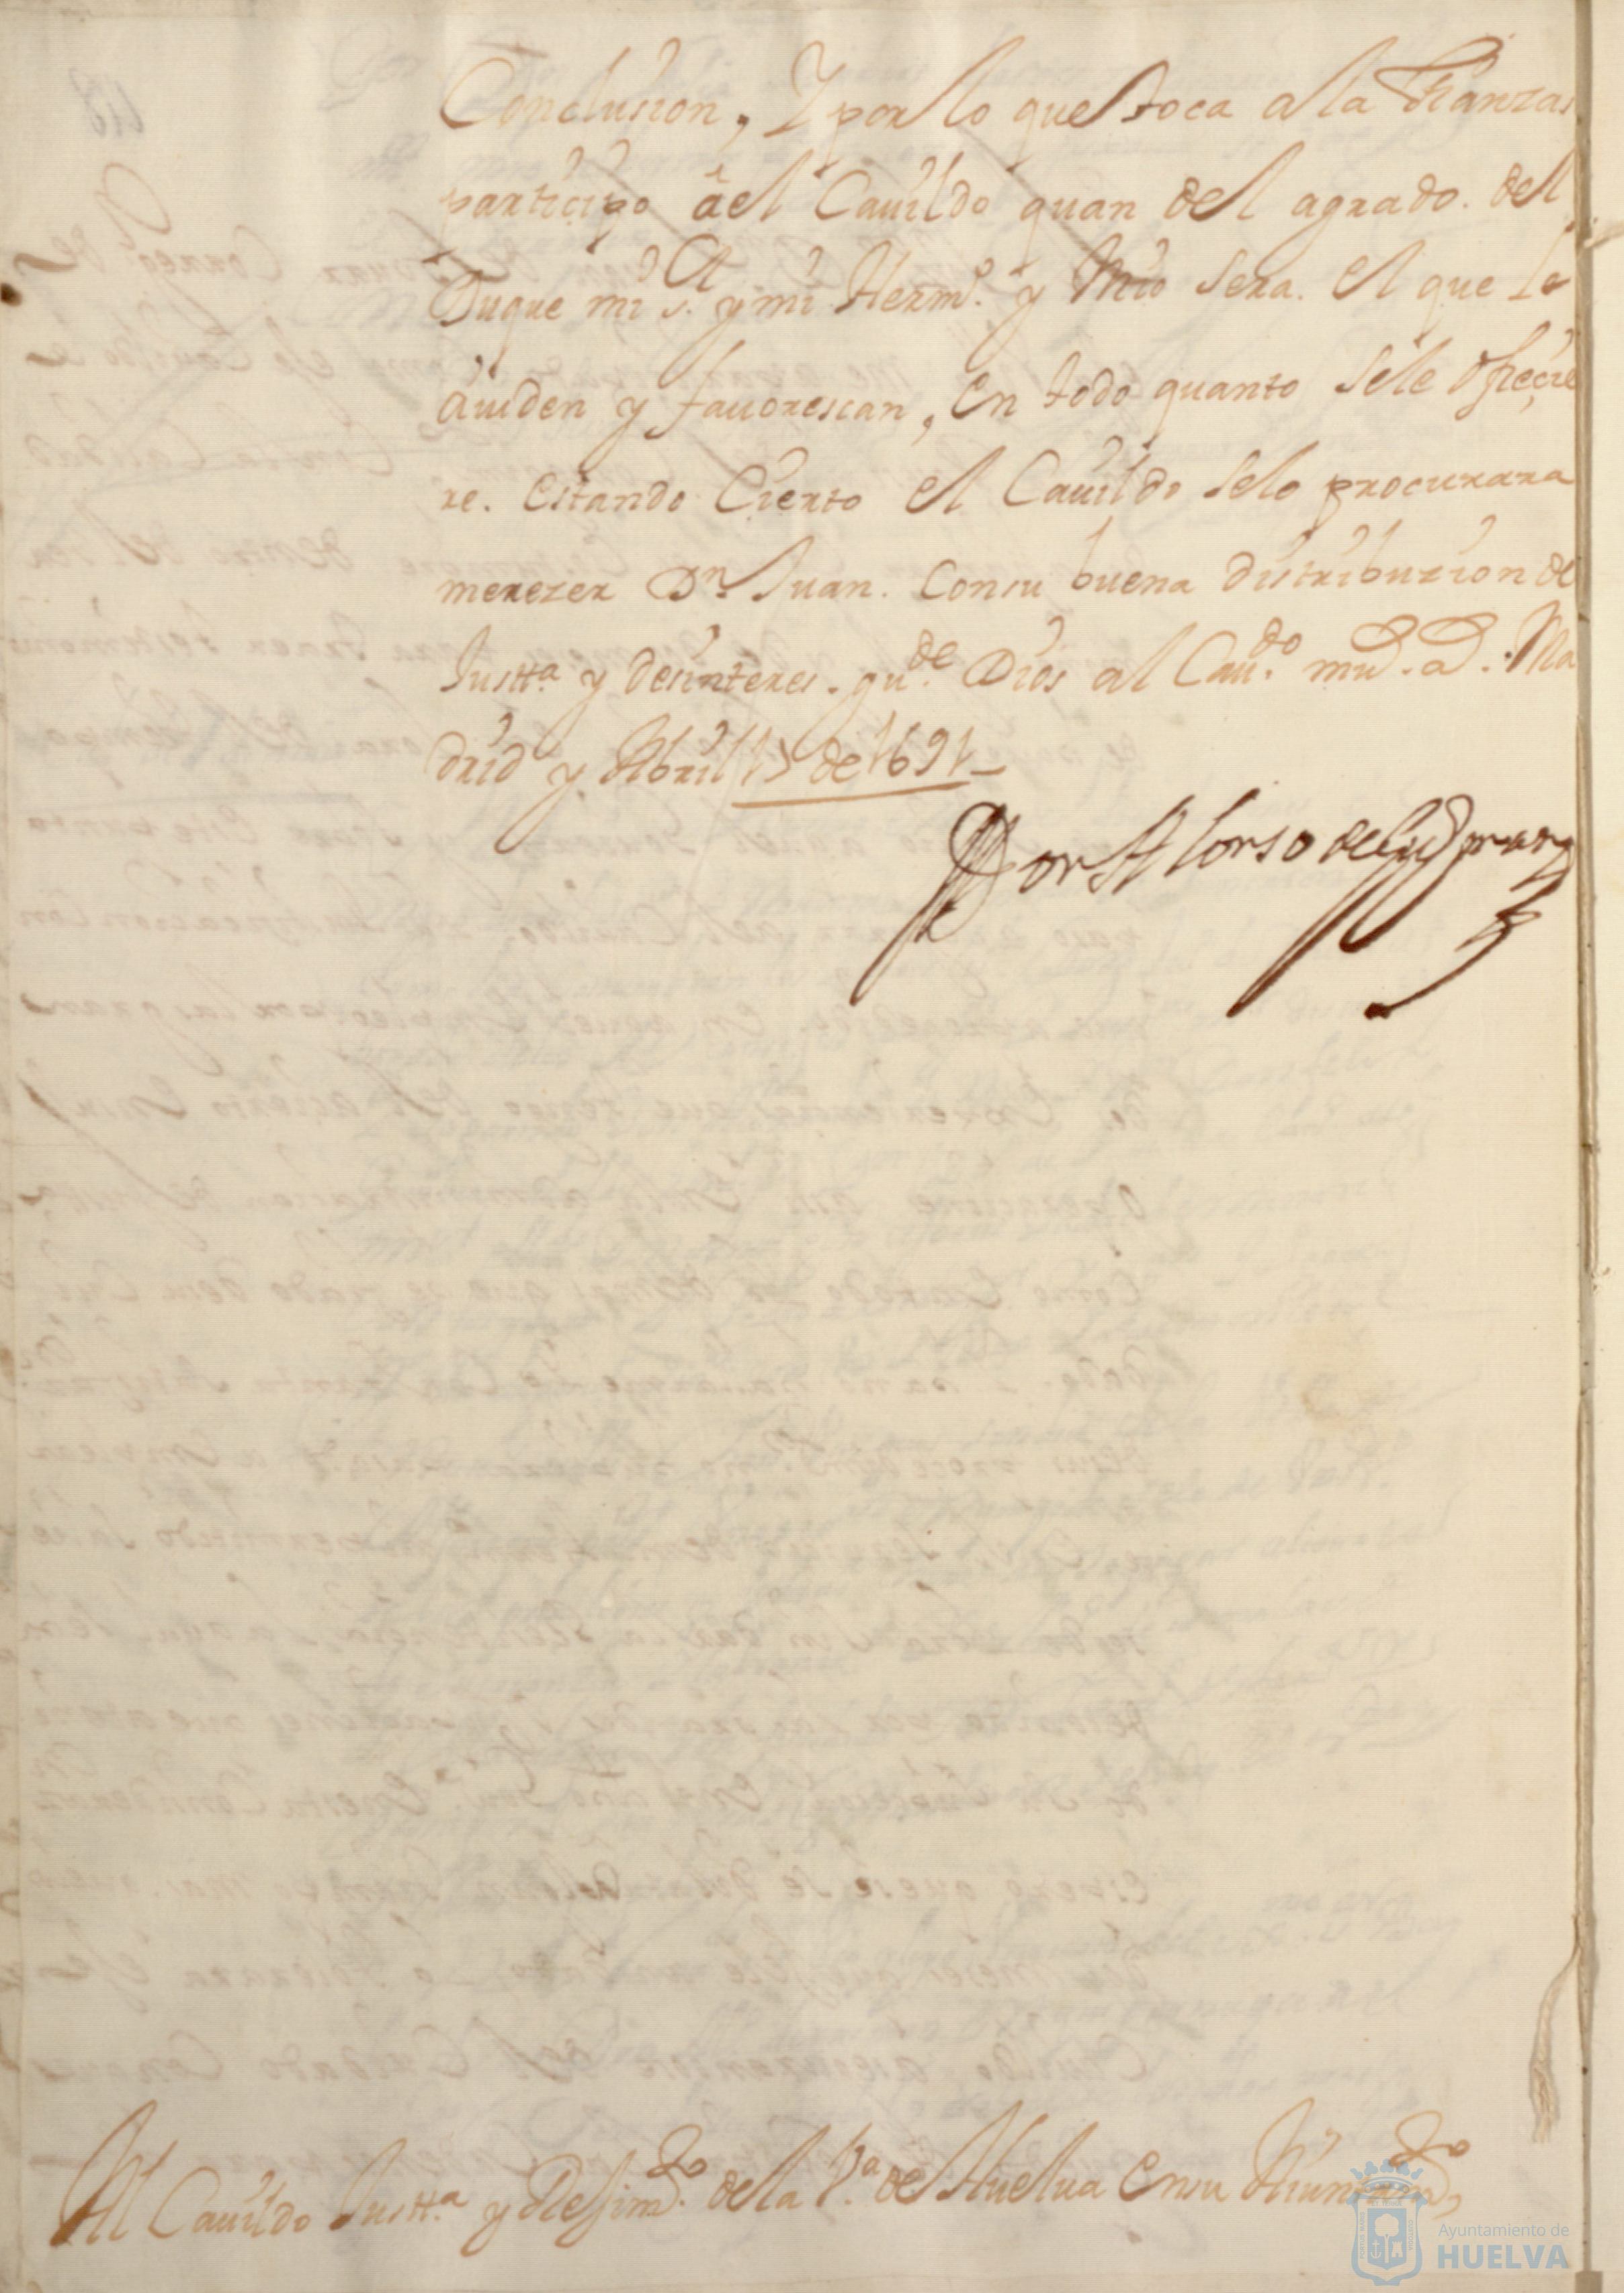 Conclusion, Y por lo que toca a la Fianzas
participo â el Cauildo quan del agrado. del
Duque mi s.r y mi Herm.o y Mio sera. el que le
aiuden y fauorescan, en todo quanto sele ofreçie
re. estando Cierto el Cauildo selo procurara
merezer D.n Juan. Consu buena distribuzion de
Justt.a y desinteres. gu.de Dios al Cau.do m.s a.s. Ma
drid y Abril 15 de 1691
Don Alonso de Guzman
Al Cauildo Justt.a y Rejim.to de la V.a de Huelua ensu Aiuntam.to
Ayuntamiento de
HUELVA